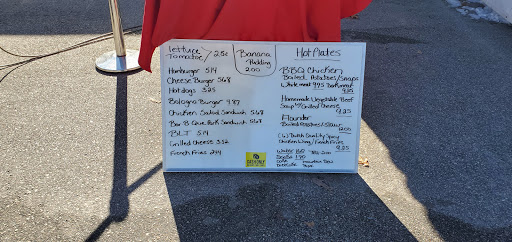 lettuce
Tomatoe / 25¢
Hamburger 5.14
Cheese Burger 5.68
Hotdogs 3.25
Bologna Burger 4.87
Chicken Salad Sandwich 5.68
Bar B Que Pork Sandwich 5.68
BLT 5.14
Grilled Cheese 3.52
French Fries 2.44
Banana
Pudding
2.00
Hot Plates
BBQ Chicken
Boiled Potatoes/Snaps
White meat 9.95 Dark meat
9.25
Homemade Vegetable Beef
Soup w/ Grilled Cheese
9.25
Flounder
Boiled Potatoes / Slaw
12.00
(6) Dutch Quality Spicy
Chicken Wing / French Fries
9.25
Water 1.00
Soda 1.90
Coke Mountain Dew